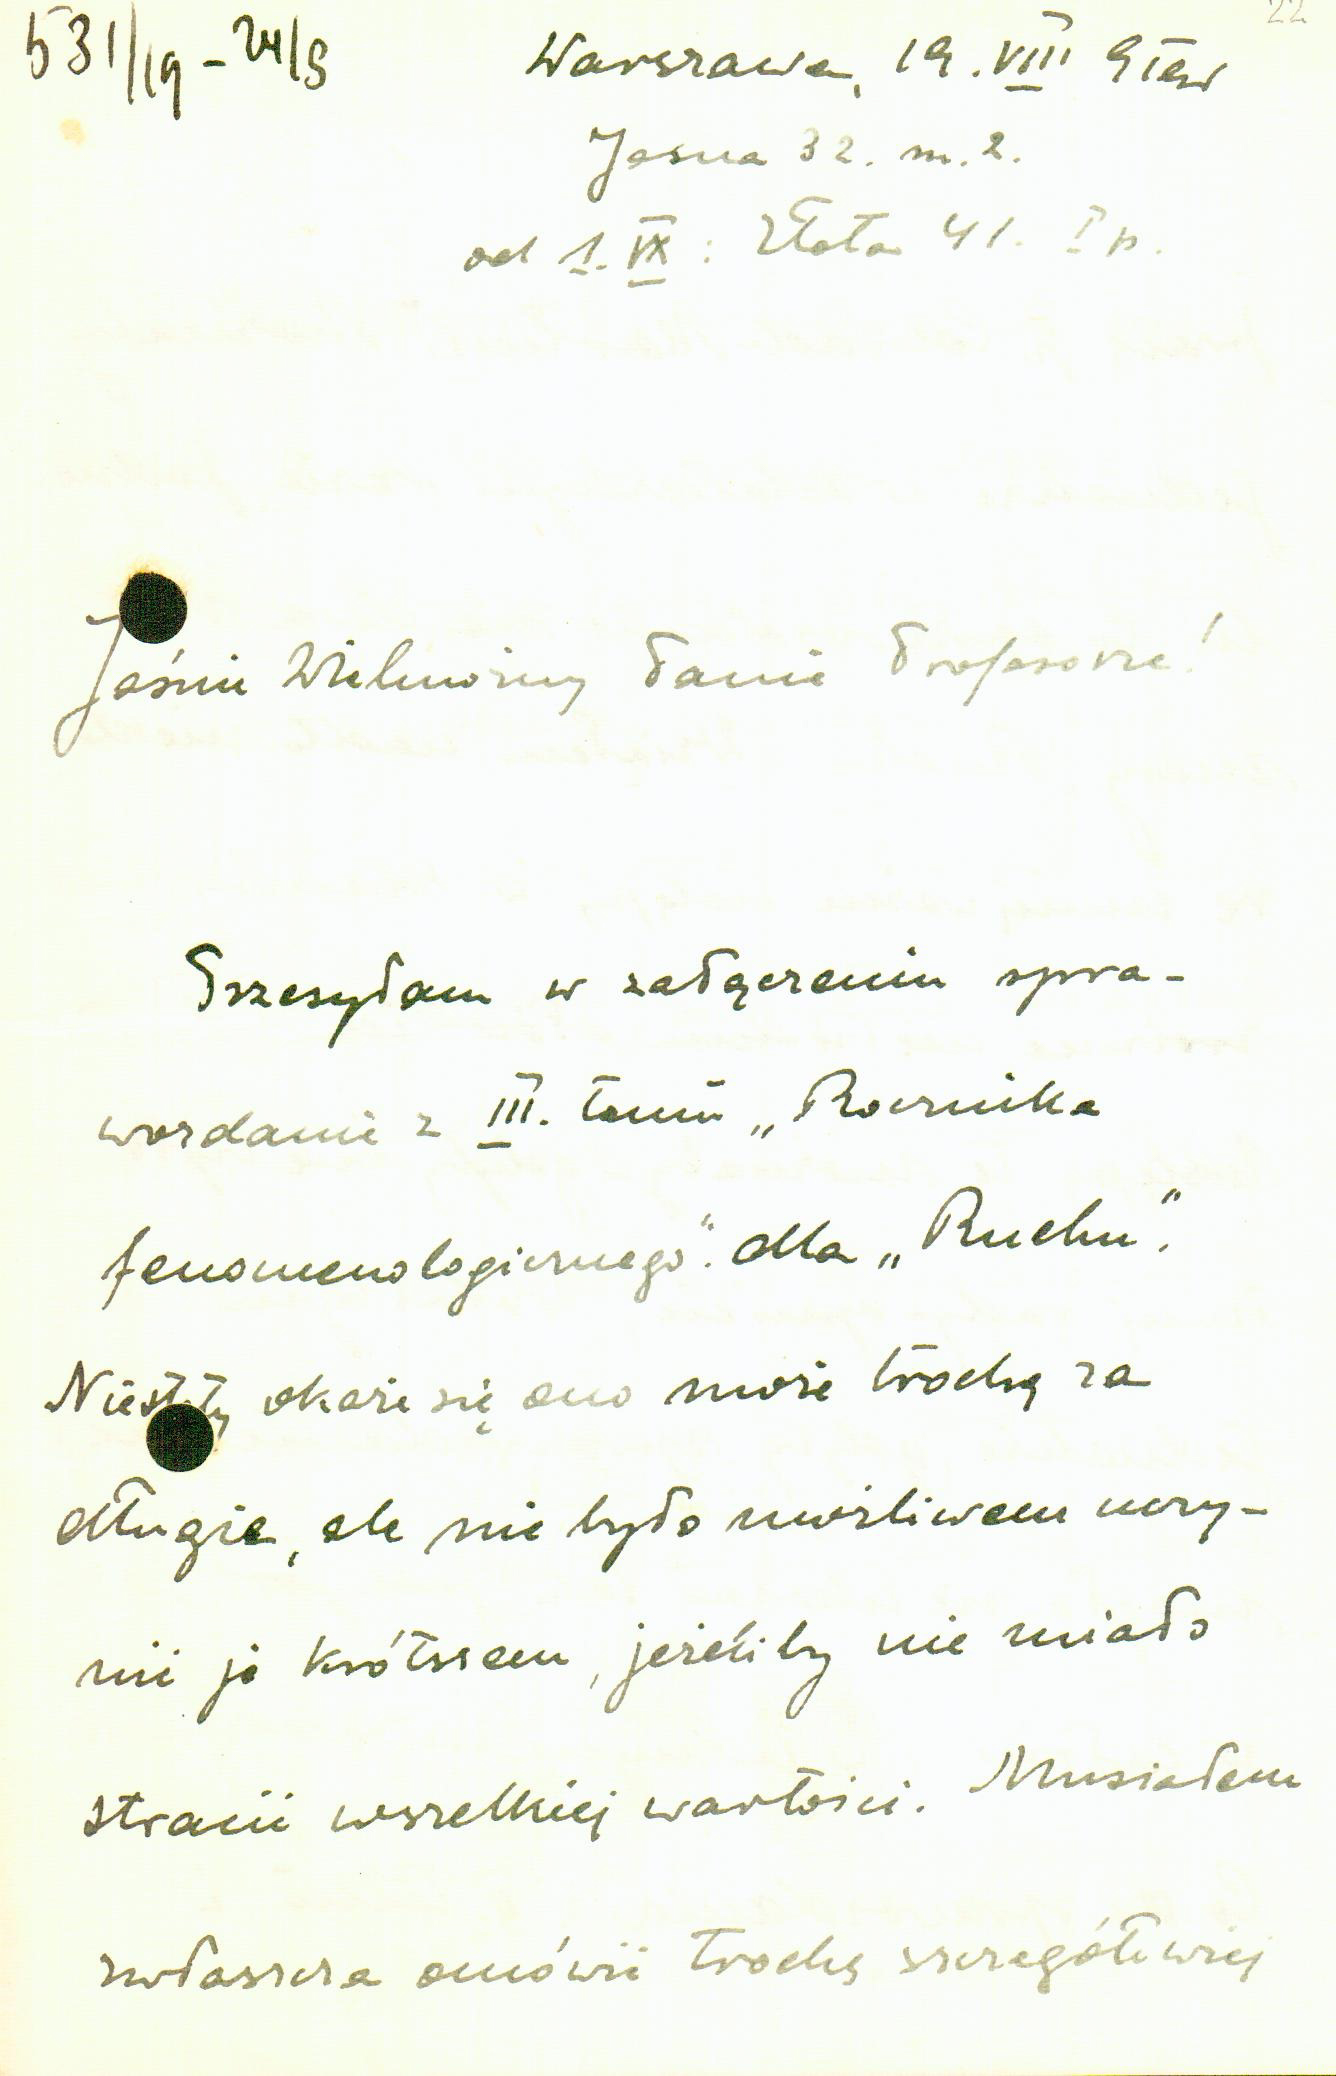 22
531/19 - 24/8
Warszawa, 19. VIII 919
Jasna 32. m. 2.
od 1. IX : Złota 41. I p.
Jaśnie Wielmożny Panie Profesorze!
Przesyłam w załączeniu spra-
wozdanie z III. tomu „Rocznika
fenomenologicznego". dla „Ruchu".
Niestety okaże się ono może trochę za
długie, ale nie było możliwem uczy-
nić je krótszem, jeżeliby nie miało
stracić wszelkiej wartości. Musiałem
zwłaszcza omówić trochę szczegółowiej